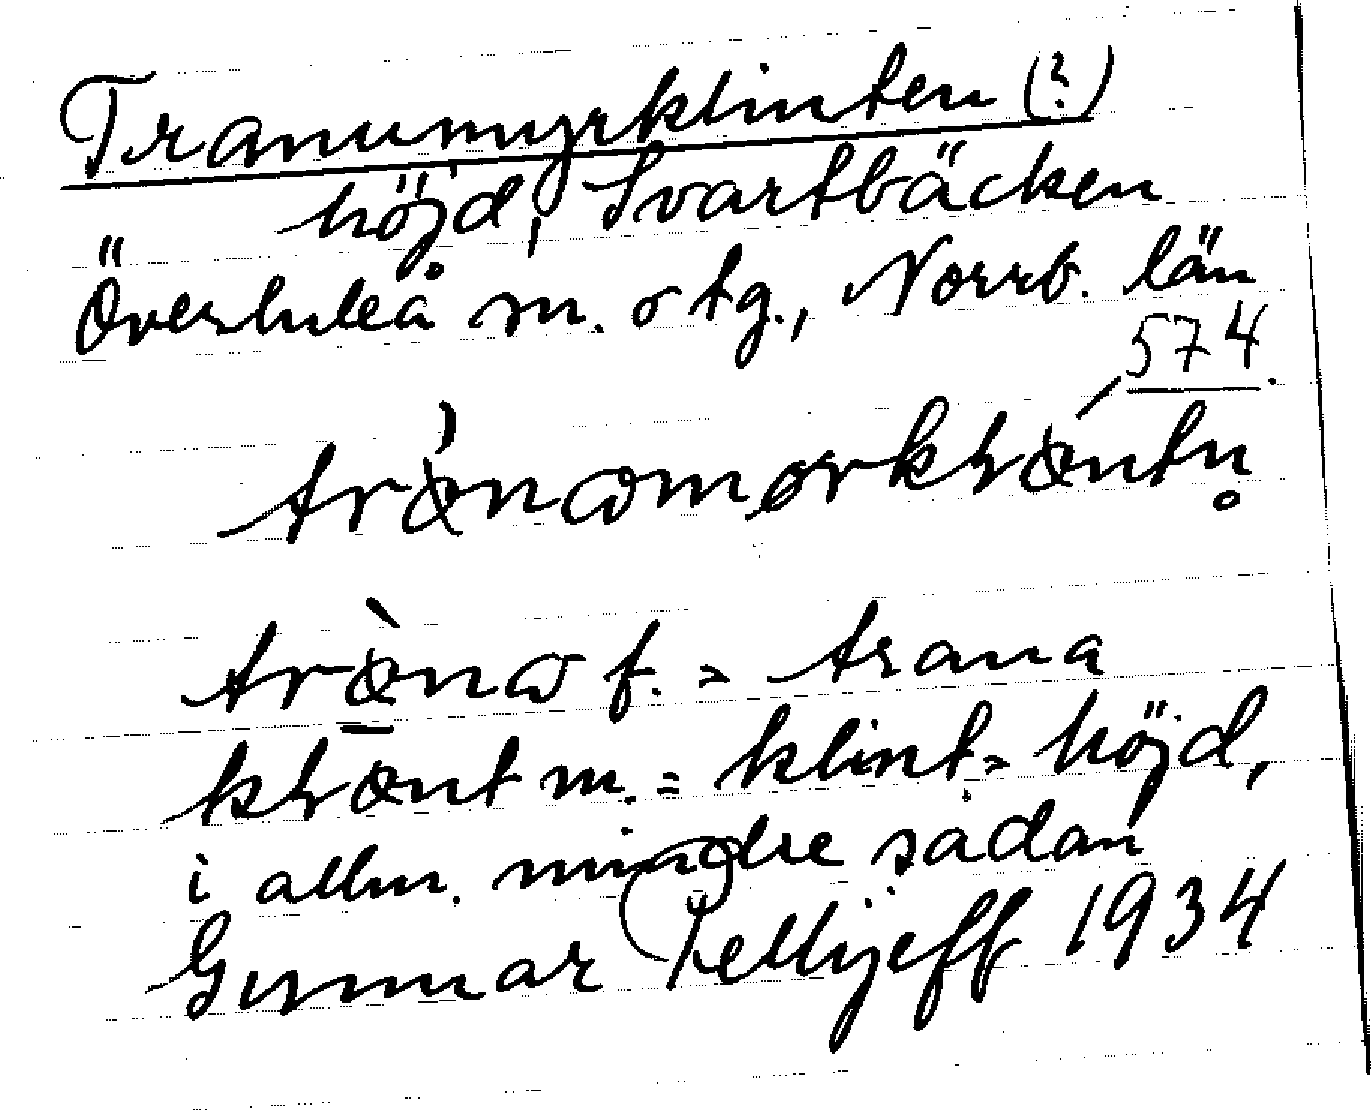 Tranumyrklinten (?)
höjd, Svartbäcken
Överluleå sn. o tg., Norrb. län
574.
i allm. mindre sådan
trana
klint = höjd,
Gunnar Pellijeff 1934